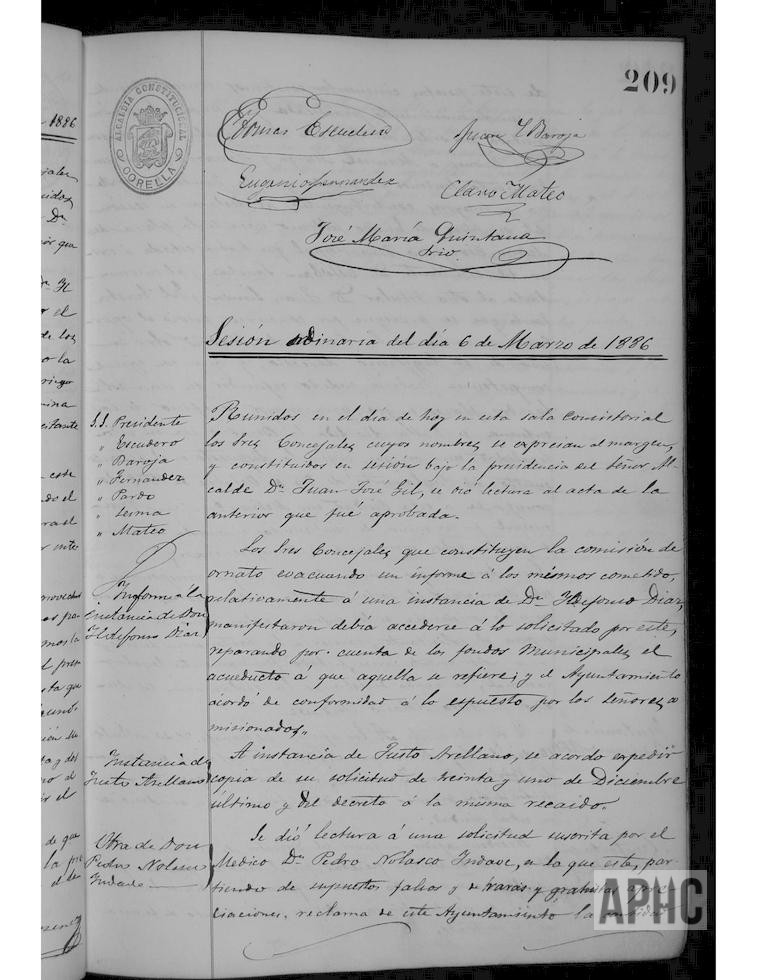 209
ALCALDIA CONSTITUCIONAL
CORELLA
Tomas Escudero
Juan Y Baroja
Eugenio Fernandez
Claro Mateo
José María Quintana
Srio.
Sesión ordinaria del día 6 de Marzo de 1886
S.S. Presidente
" Escudero
" Baroja
" Fernandez
" Pardo
" Lerma
" Mateo
Reunidos en el dia de hoy en esta sala Consistorial
los Sres Concejales cuyos nombres se expresan al margen,
y constituidos en sesión bajo la presidencia del Señor Al-
calde Dn Juan José Gil, se dió lectura al acta de la
anterior que fué aprobada.
Informe á la
instancia de Don
Ildefonso Diaz
Los Sres Concejales que constituyen la comisión de
ornato evacuando un informe á los mismos cometido,
relativamente á una instancia de Dn Ildefonso Diaz,
manifestaron debía accederse á lo solicitado por este,
reparando por cuenta de los fondos Municipales el
acueducto á que aquella se refiere; y el Ayuntamiento
acordó de conformidad á lo espuesto por los señores co
misionados.
Instancia de
Justo Arellano
A instancia de Justo Arellano, se acordo expedir
copia de su solicitud de treinta y uno de Diciembre
ultimo y del decreto á la misma recaido.
Otra de Don
Pedro Nolasco
Indave
Se dió lectura á una solicitud suscrita por el
Medico Dn Pedro Nolasco Indave, en la que este, par-
tiendo de supuestos falsos y de raras y gratuitas apre
ciaciones, reclama de este Ayuntamiento la cantidad
1886
APHC